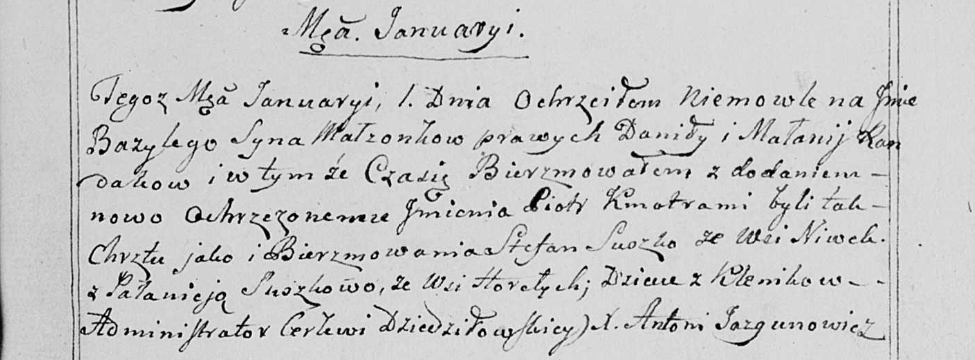 Mca. Januaryi.
Tegoz Mca Januaryi, 1. Dnia Ochrzciłem Niemowle na Jmie
Bazylego Syna Małzonkow prawych Daniły i Małanij Kan
dakow i w tym że Czasię Bierzmowałem z dodaniem –
nowo Ochrzczonemu Jmienia Piotr Kmotrami byli tak –
Chrztu jako i Bierzmowania Stefan Suszko ze Wsi Niwek.
z Pałanieją Suszkowo, ze Wsi Horełych; Dzieie z Klenikow – –
Administrator Cerkwi Dziedziłowskiey) X. Antoni Jazgunowicz